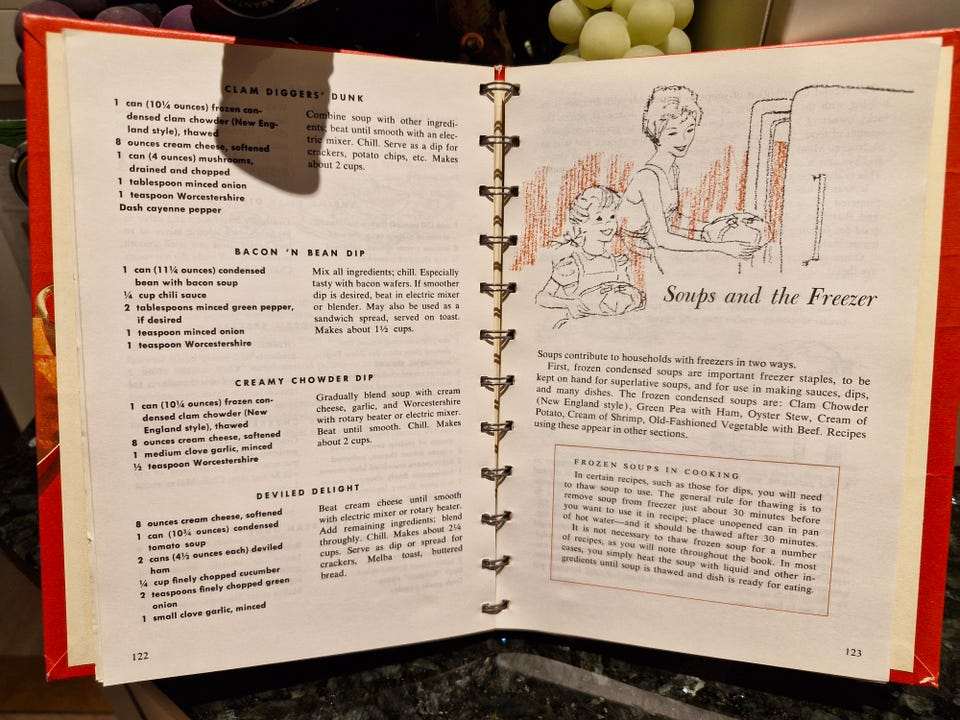 CLAM DIGGERS' DUNK
1 can (10¼ ounces) frozen con-
densed clam chowder (New Eng-
land style), thawed
8 ounces cream cheese, softened
1 can (4 ounces) mushrooms,
drained and chopped
1 tablespoon minced onion
1 teaspoon Worcestershire
Dash cayenne pepper
Combine soup with other ingredi-
ents; beat until smooth with an elec-
tric mixer. Chill. Serve as a dip for
crackers, potato chips, etc. Makes
about 2 cups.
BACON 'N BEAN DIP
1 can (11¼ ounces) condensed
bean with bacon soup
¼ cup chili sauce
2 tablespoons minced green pepper,
if desired
1 teaspoon minced onion
1 teaspoon Worcestershire
Mix all ingredients; chill. Especially
tasty with bacon wafers. If smoother
dip is desired, beat in electric mixer
or blender. May also be used as a
sandwich spread, served on toast.
Makes about 1½ cups.
CREAMY CHOWDER DIP
1 can (10¼ ounces) frozen con-
densed clam chowder (New
England style), thawed
8 ounces cream cheese, softened
1 medium clove garlic, minced
½ teaspoon Worcestershire
Gradually blend soup with cream
cheese, garlic, and Worcestershire
with rotary beater or electric mixer.
Beat until smooth. Chill. Makes
about 2 cups.
DEVILED DELIGHT
8 ounces cream cheese, softened
1 can (10¾ ounces) condensed
tomato soup
2 cans (4½ ounces each) deviled
ham
¼ cup finely chopped cucumber
2 teaspoons finely chopped green
onion
1 small clove garlic, minced
Beat cream cheese until smooth
with electric mixer or rotary beater.
Add remaining ingredients; blend
throughly. Chill. Makes about 2¼
cups. Serve as dip or spread for
crackers, Melba toast, buttered
bread.
122
Soups and the Freezer
Soups contribute to households with freezers in two ways.
First, frozen condensed soups are important freezer staples, to be
kept on hand for superlative soups, and for use in making sauces, dips,
and many dishes. The frozen condensed soups are: Clam Chowder
(New England style), Green Pea with Ham, Oyster Stew, Cream of
Potato, Cream of Shrimp, Old-Fashioned Vegetable with Beef. Recipes
using these appear in other sections.
FROZEN SOUPS IN COOKING
In certain recipes, such as those for dips, you will need
to thaw soup to use. The general rule for thawing is to
remove soup from freezer just about 30 minutes before
you want to use it in recipe; place unopened can in pan
of hot water—and it should be thawed after 30 minutes.
It is not necessary to thaw frozen soup for a number
of recipes, as you will note throughout the book. In most
cases, you simply heat the soup with liquid and other in-
gredients until soup is thawed and dish is ready for eating.
123